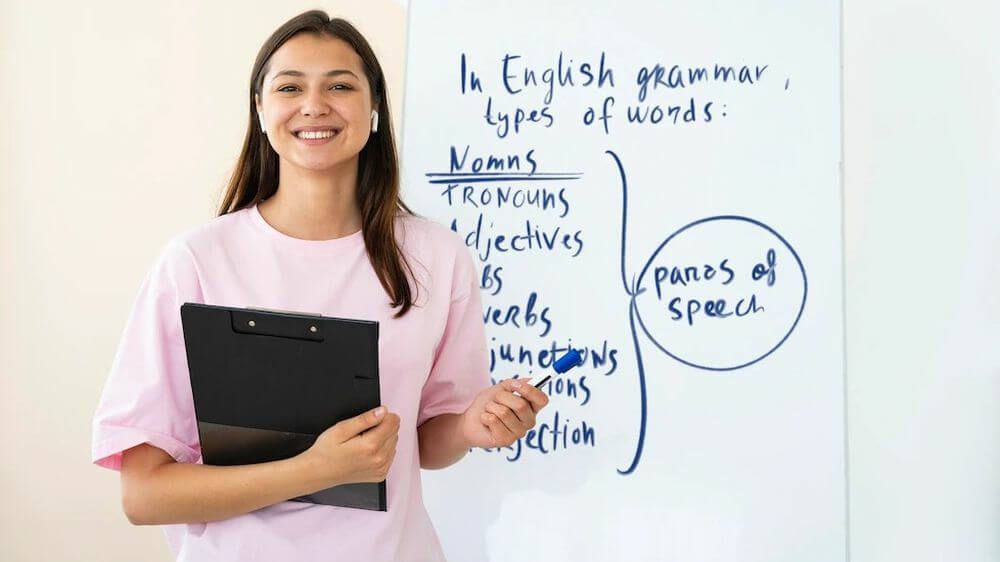 In English grammar,
types of words:
Nomns
TRONOUNS
Adjectives
bs
verbs
junctions
itions
jection
panas of
speech